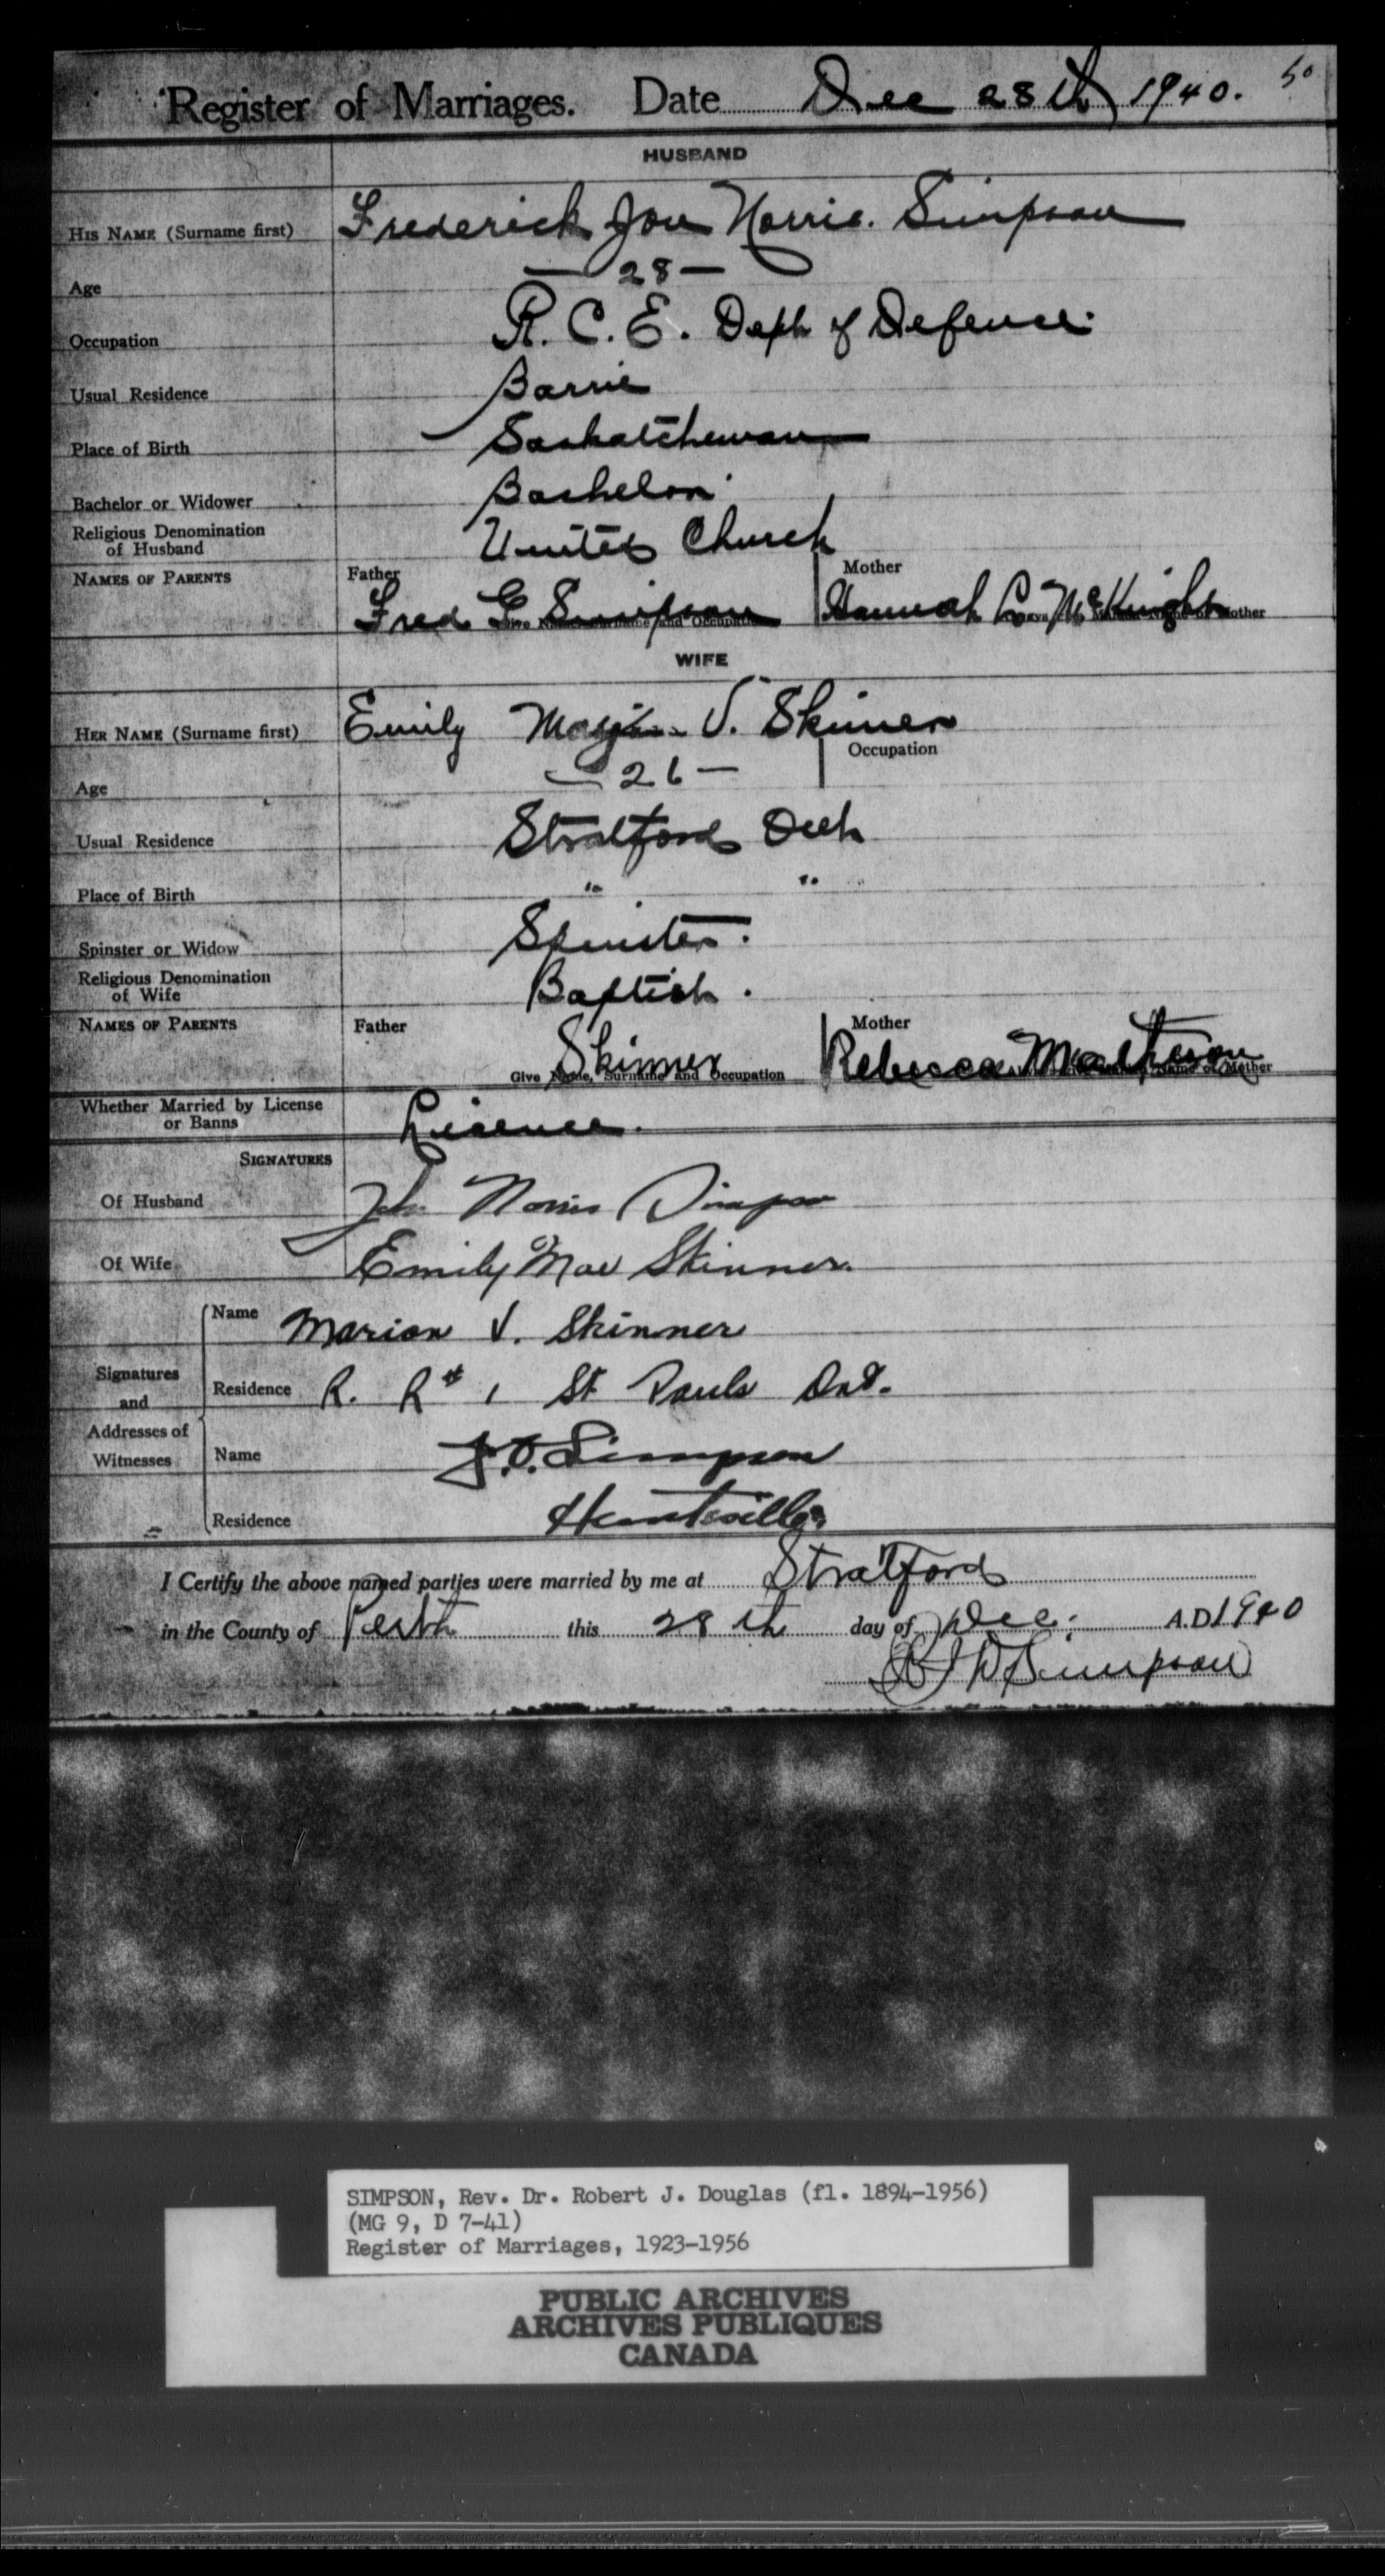 Register of Marriages. Date Dec 28th 1940. 50
HUSBAND
HIS NAME (Surname first) Frederick Jon Norris. Simpson
Age — 28 —
Occupation R. C. E. Dept of Defence.
Usual Residence Barrie
Place of Birth Saskatchewan
Bachelor or Widower Bachelor
Religious Denomination
of Husband United Church
NAMES OF PARENTS Father Mother
Fred G. Simpson Hannah McKnight
WIFE
HER NAME (Surname first) Emily V. Skinner
Occupation
Age — 26 —
Usual Residence Stratford Ont
Place of Birth " "
Spinster or Widow Spinster.
Religious Denomination
of Wife Baptist.
NAMES OF PARENTS Father Mother
Skinner Rebecca Matheson
Give Name, Surname and Occupation
Whether Married by License
or Banns Licence.
SIGNATURES
Of Husband John Norris Simpson
Of Wife Emily Mae Skinner.
Name Marion V. Skinner
Signatures
and
Residence R. R# 1 St Pauls Ont.
Addresses of
Witnesses
Name J. O. Simpson
Residence Huntsville
I Certify the above named parties were married by me at Stratford
in the County of Perth this 28th day of Dec. A.D. 1940
R J D Simpson
SIMPSON, Rev. Dr. Robert J. Douglas (fl. 1894-1956)
(MG 9, D 7-41)
Register of Marriages, 1923-1956
PUBLIC ARCHIVES
ARCHIVES PUBLIQUES
CANADA